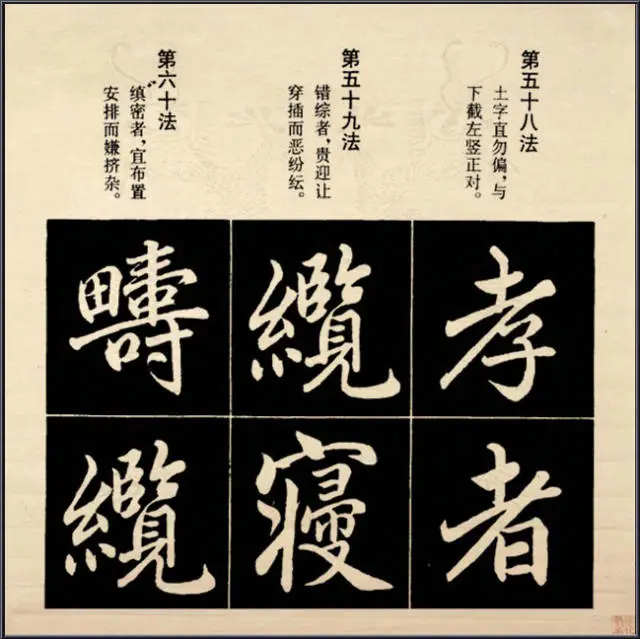 第五十八法
土字直勿偏，与
下截左竖正对。
孝
者
第五十九法
错综者，贵迎让
穿插而恶纷纭。
纜
寢
第六十法
缜密者，宜布置
安排而嫌挤杂。
疇
纜